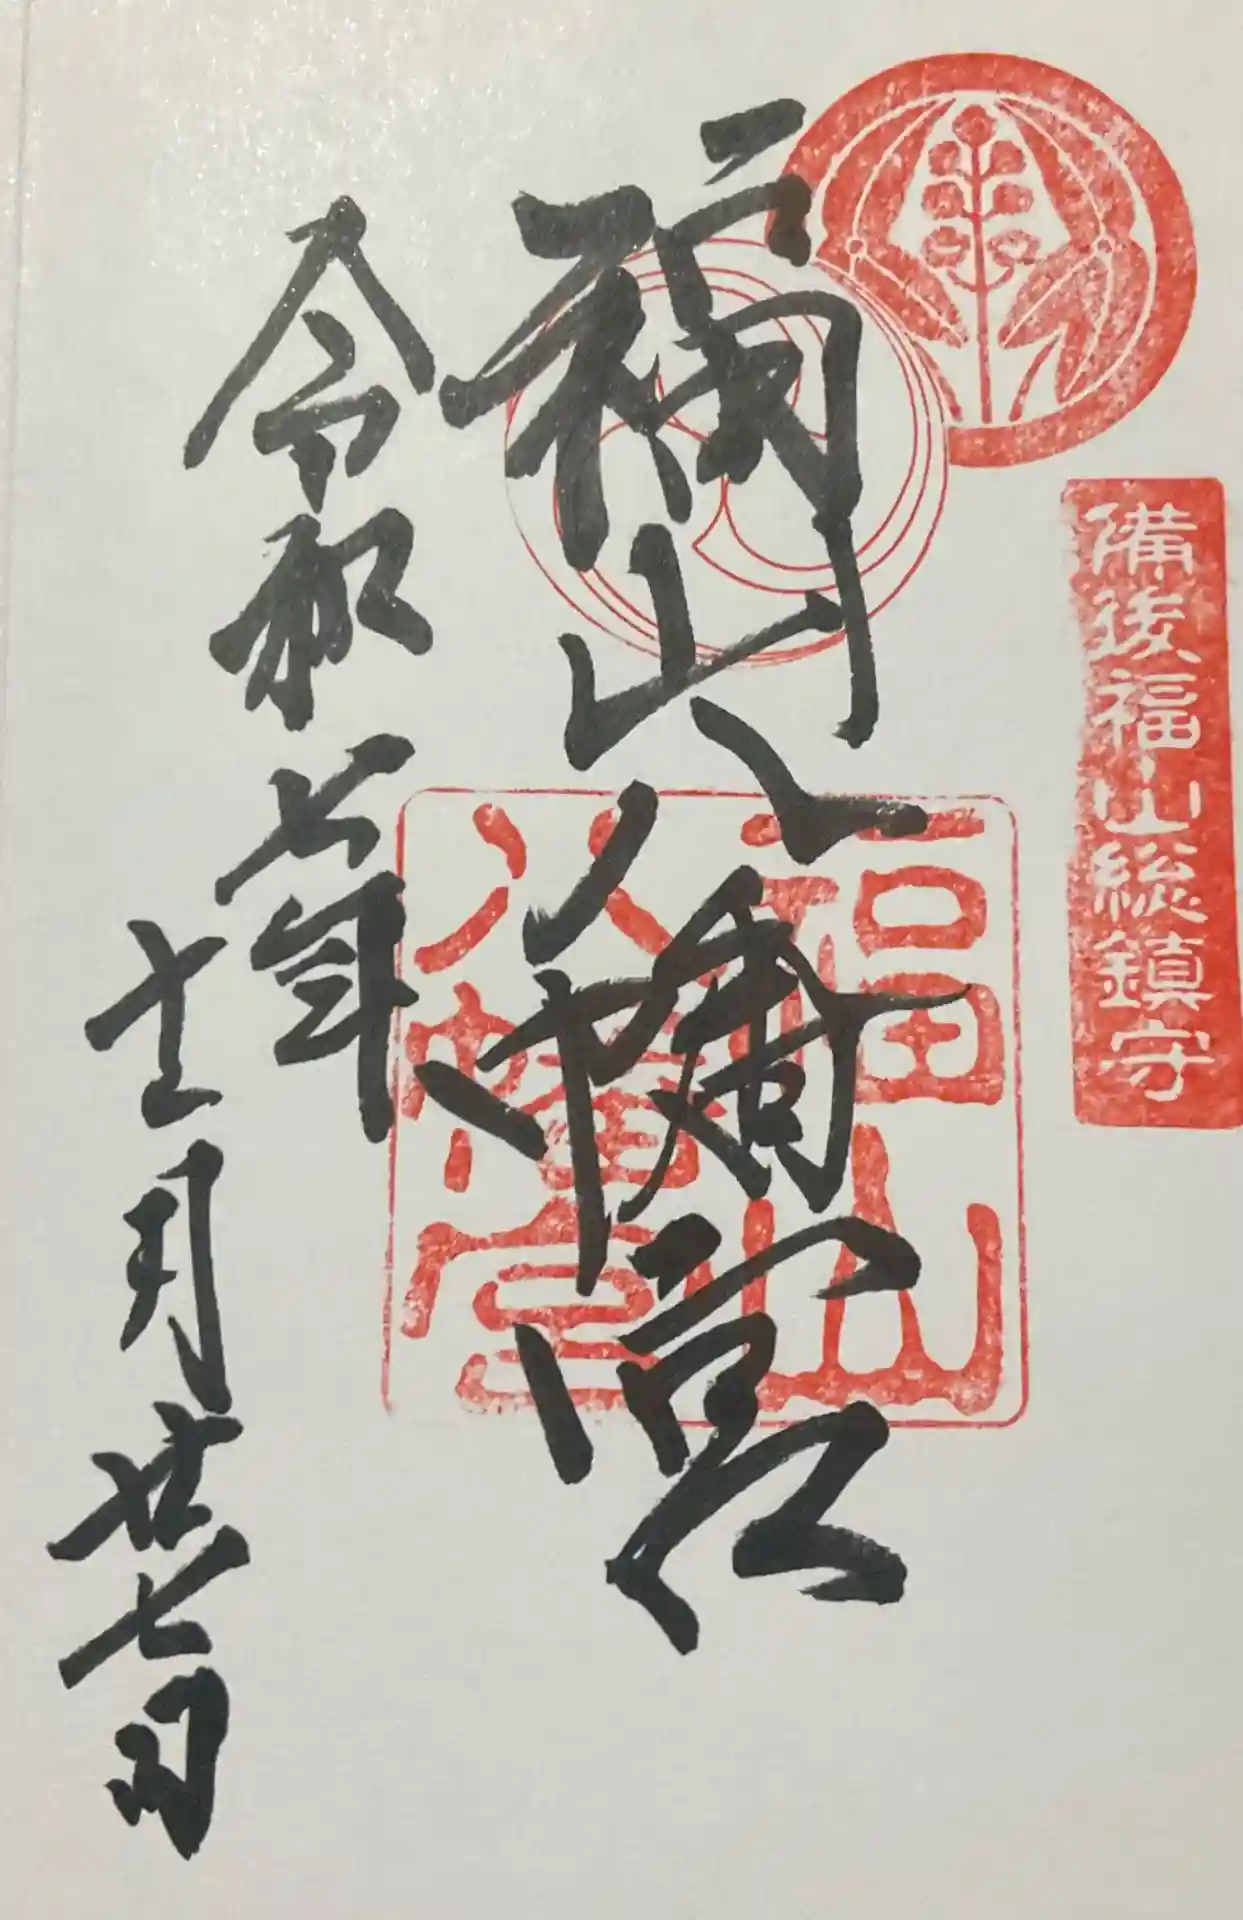 備後福山総鎮守
福山八幡宮
福山
八幡宮
令和七年
十二月廿七日